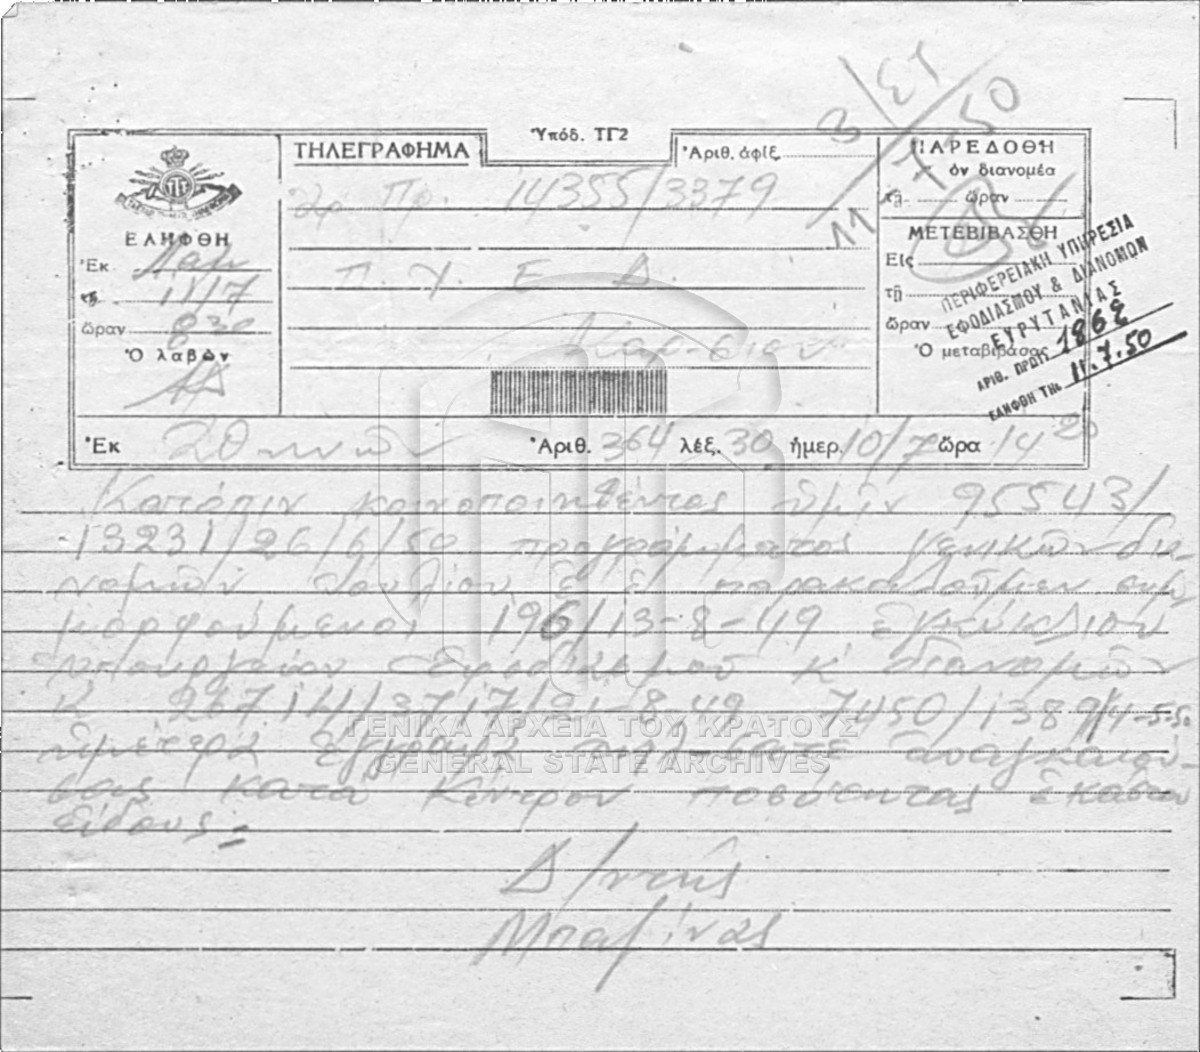 3/ΕΤ
11-7-50
Ὑπόδ. ΤΓ2
ΤΗΛΕΓΡΑΦΗΜΑ
Ἀριθ. ἀφίξ.
ΠΑΡΕΔΟΘΗ
ὃν διανομέα
τῇ ὥραν
ἀρ. Πρ. 14355/3379
ΕΛΗΦΘΗ
Ἐκ Λαμ
τῇ 11/7
ὥραν 8 30
Ὁ λαβὼν
Π. Υ. Ε. Δ.
Καρ-σιον
ΜΕΤΕΒΙΒΑΣΘΗ
Εἰς
τῇ
ὥραν
Ὁ μεταβιβάσας
ΠΕΡΙΦΕΡΕΙΑΚΗ ΥΠΗΡΕΣΙΑ
ΕΦΟΔΙΑΣΜΟΥ & ΔΙΑΝΟΜΩΝ
ΕΥΡΥΤΑΝΙΑΣ
ΑΡΙΘ. ΠΡΩΤ. 1862
ΕΛΗΦΘΗ ΤΗΝ 11.7.50
Ἐκ Ἀθηνῶν Ἀριθ. 364 λέξ. 30 ἡμερ. 10/7 ὥρα 14 20
Κατόπιν κοινοποιηθέντος ὑμῖν 95543/
13231/26/6/50 προγράμματος γενικῶν δια-
νομῶν Ἰουλίου ἐ. ἔ. παρακαλοῦμεν συμ
μορφούμενοι 196/13-8-49 ἐγκύκλιον
ὑπουργείου Ἐφοδιασμοῦ κ' διανομῶν
7450/1389/4-5-50
ἡμέτερα ἔγγραφα ἀναγκαιού-
σας κατὰ Κέντρον ποσότητας ἑκάστου
εἴδους =
Δ/ντὴς
Μπαζίνας
ΓΕΝΙΚΑ ΑΡΧΕΙΑ ΤΟΥ ΚΡΑΤΟΥΣ
GENERAL STATE ARCHIVES